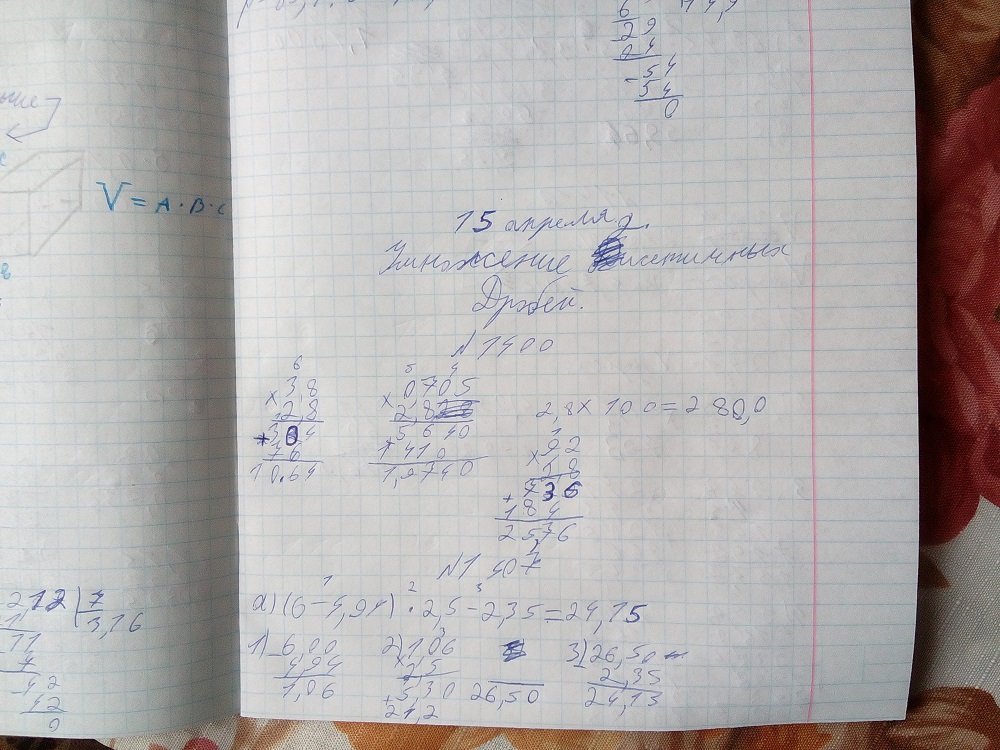 6
29
24
-54
54
0
V = A · B · C
15 апреля
Умножение
Дробей.
N 1400
6
3,8
× 2,8
304
+ 76
10.64
5 4
0705
× 2,8
5640
1410
1,2740
2,8 × 100 = 280,0
1
92
× 2,8
736
+ 184
2576
N 1407
1 2 3
а) (6 - 4,94) · 2,5 - 2,35 = 24,15
1) 6,00
4,94
1,06
2) 1,06
× 2,5
5,30
+ 21,2
26,50
3) 26,50
2,35
24,15
212 | 7
3,16
11
7
-42
42
0